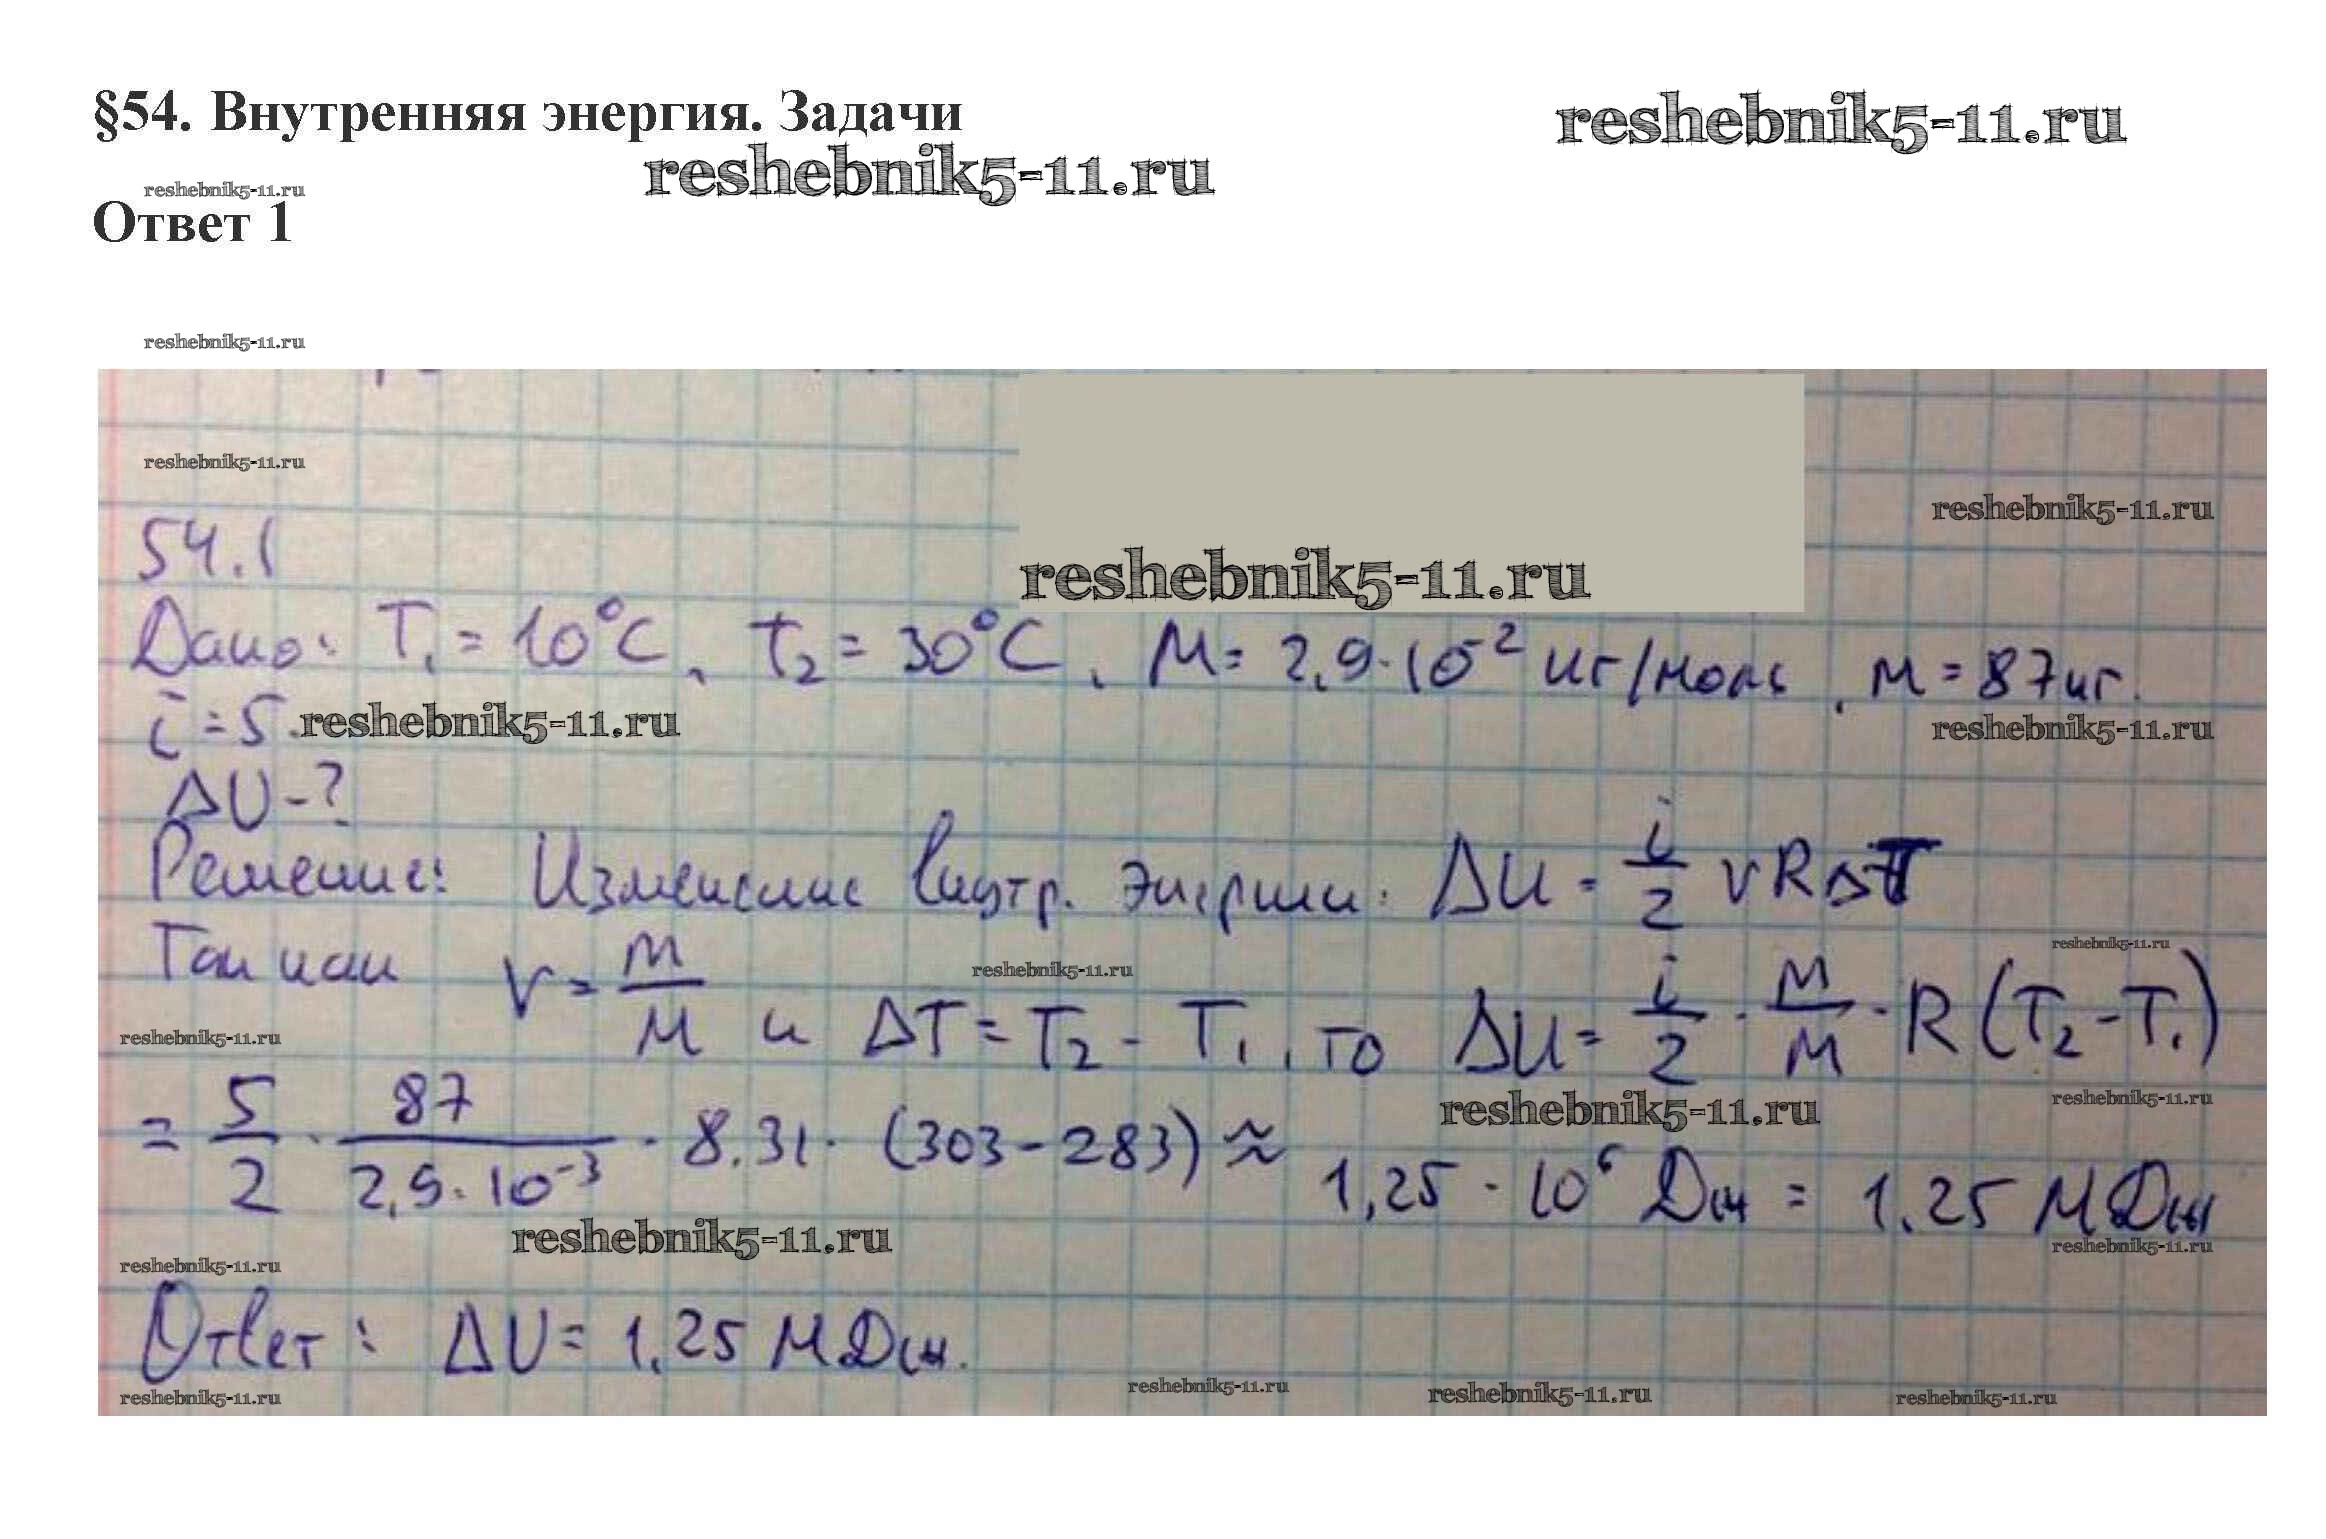 §54. Внутренняя энергия. Задачи
reshebnik5-11.ru
reshebnik5-11.ru
reshebnik5-11.ru
Ответ 1
reshebnik5-11.ru
reshebnik5-11.ru
reshebnik5-11.ru
54.1
reshebnik5-11.ru
Дано: T₁ = 10°C, t₂ = 30°C, M = 2,9·10⁻² кг/моль, m = 87 кг.
i = 5.
reshebnik5-11.ru
reshebnik5-11.ru
ΔU - ?
Решение: Изменение внутр. энергии: ΔU = i/2 νRΔT
reshebnik5-11.ru
reshebnik5-11.ru
Так как ν = m/M и ΔT = T₂ - T₁, то ΔU = i/2 · m/M · R(T₂ - T₁)
reshebnik5-11.ru
reshebnik5-11.ru
reshebnik5-11.ru
= 5/2 · 87/2,9·10⁻³ · 8,31 · (303 - 283) ≈ 1,25 · 10⁶ Дж = 1,25 МДж
reshebnik5-11.ru
reshebnik5-11.ru
reshebnik5-11.ru
Ответ: ΔU = 1,25 МДж.
reshebnik5-11.ru
reshebnik5-11.ru
reshebnik5-11.ru
reshebnik5-11.ru